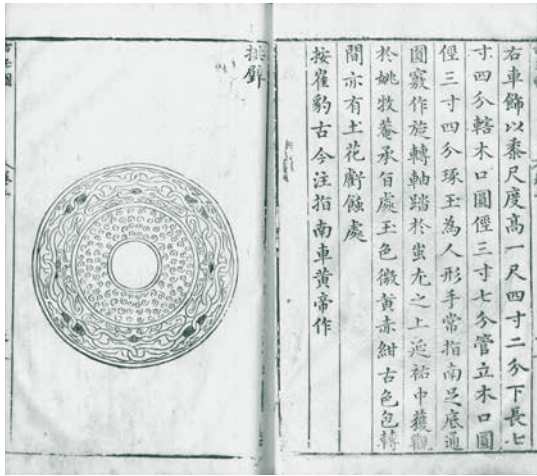 右車飾以黍尺度高一尺四寸二分下長七
寸四分轄木口圓徑三寸七分管立木口圓
徑三寸四分琢玉為人形手常指南足底通
圓竅作旋轉軸踏於蚩尤之上延祐中獲觀
於姚牧菴承旨處玉色微黃赤紺古色包轉
間亦有土花虧蝕處
按崔豹古今注指南車黃帝作
璧